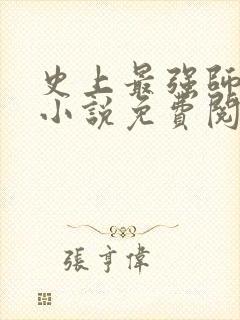 史上最强師
小說免費閱
張亨偉